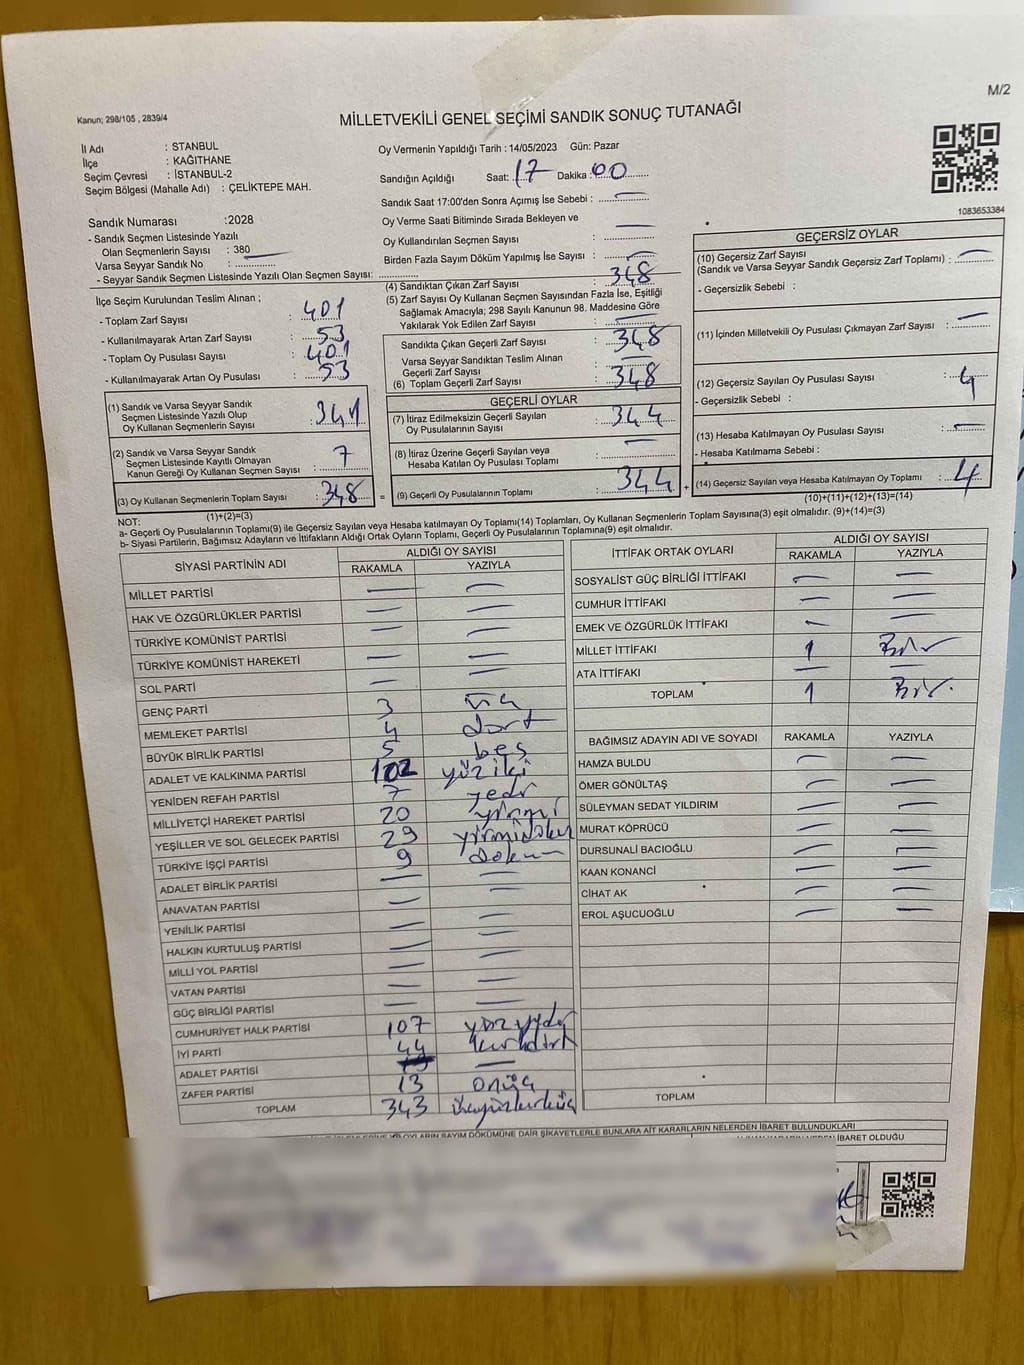 M/2
Kanun; 298/105 , 2839/4
MİLLETVEKİLİ GENEL SEÇİMİ SANDIK SONUÇ TUTANAĞI
İl Adı : STANBUL
İlçe : KAĞITHANE
Seçim Çevresi : İSTANBUL-2
Seçim Bölgesi (Mahalle Adı) : ÇELİKTEPE MAH.
Sandık Numarası :2028
- Sandık Seçmen Listesinde Yazılı
Olan Seçmenlerin Sayısı : 380
Varsa Seyyar Sandık No :
- Seyyar Sandık Seçmen Listesinde Yazılı Olan Seçmen Sayısı:
Oy Vermenin Yapıldığı Tarih : 14/05/2023 Gün: Pazar
Sandığın Açıldığı Saat: 17 Dakika : 00
Sandık Saat 17:00'den Sonra Açımış İse Sebebi : —
Oy Verme Saati Bitiminde Sırada Bekleyen ve
Oy Kullandırılan Seçmen Sayısı : —
Birden Fazla Sayım Döküm Yapılmış İse Sayısı : —
1083653384
İlçe Seçim Kurulundan Teslim Alınan ;
- Toplam Zarf Sayısı : 401
- Kullanılmayarak Artan Zarf Sayısı : 53
- Toplam Oy Pusulası Sayısı : 401
- Kullanılmayarak Artan Oy Pusulası : 53
(1) Sandık ve Varsa Seyyar Sandık
Seçmen Listesinde Yazılı Olup
Oy Kullanan Seçmenlerin Sayısı : 341
(2) Sandık ve Varsa Seyyar Sandık
Seçmen Listesinde Kayıtlı Olmayan
Kanun Gereği Oy Kullanan Seçmen Sayısı : 7
(3) Oy Kullanan Seçmenlerin Toplam Sayısı : 348 =
(1)+(2)=(3)
(4) Sandıktan Çıkan Zarf Sayısı : 348
(5) Zarf Sayısı Oy Kullanan Seçmen Sayısından Fazla İse, Eşitliği
Sağlamak Amacıyla; 298 Sayılı Kanunun 98. Maddesine Göre
Yakılarak Yok Edilen Zarf Sayısı : —
Sandıkta Çıkan Geçerli Zarf Sayısı : 348
Varsa Seyyar Sandıktan Teslim Alınan
Geçerli Zarf Sayısı : —
(6) Toplam Geçerli Zarf Sayısı : 348
GEÇERLİ OYLAR
(7) İtiraz Edilmeksizin Geçerli Sayılan
Oy Pusulalarının Sayısı : 344
(8) İtiraz Üzerine Geçerli Sayılan veya
Hesaba Katılan Oy Pusulası Toplamı : —
(9) Geçerli Oy Pusulalarının Toplamı : 344 +
GEÇERSİZ OYLAR
(10) Geçersiz Zarf Sayısı
(Sandık ve Varsa Seyyar Sandık Geçersiz Zarf Toplamı) : —
- Geçersizlik Sebebi :
(11) İçinden Milletvekili Oy Pusulası Çıkmayan Zarf Sayısı : —
(12) Geçersiz Sayılan Oy Pusulası Sayısı : 4
- Geçersizlik Sebebi :
(13) Hesaba Katılmayan Oy Pusulası Sayısı : —
- Hesaba Katılmama Sebebi :
(14) Geçersiz Sayılan veya Hesaba Katılmayan Oy Toplamı : 4
(10)+(11)+(12)+(13)=(14)
NOT:
a- Geçerli Oy Pusulalarının Toplamı(9) ile Geçersiz Sayılan veya Hesaba katılmayan Oy Toplamı(14) Toplamları, Oy Kullanan Seçmenlerin Toplam Sayısına(3) eşit olmalıdır. (9)+(14)=(3)
b- Siyasi Partilerin, Bağımsız Adayların ve İttifakların Aldığı Ortak Oyların Toplamı, Geçerli Oy Pusulalarının Toplamına(9) eşit olmalıdır.
SİYASİ PARTİNİN ADI ALDIĞI OY SAYISI
RAKAMLA YAZIYLA
MİLLET PARTİSİ — —
HAK VE ÖZGÜRLÜKLER PARTİSİ — —
TÜRKİYE KOMÜNİST PARTİSİ — —
TÜRKİYE KOMÜNİST HAREKETİ — —
SOL PARTİ — —
GENÇ PARTİ 3 üç
MEMLEKET PARTİSİ 4 dört
BÜYÜK BİRLİK PARTİSİ 5 beş
ADALET VE KALKINMA PARTİSİ 102 yüz iki
YENİDEN REFAH PARTİSİ 7 yedi
MİLLİYETÇİ HAREKET PARTİSİ 20 yirmi
YEŞİLLER VE SOL GELECEK PARTİSİ 29 yirmidokuz
TÜRKİYE İŞÇİ PARTİSİ 9 dokuz
ADALET BİRLİK PARTİSİ — —
ANAVATAN PARTİSİ — —
YENİLİK PARTİSİ — —
HALKIN KURTULUŞ PARTİSİ — —
MİLLİ YOL PARTİSİ — —
VATAN PARTİSİ — —
GÜÇ BİRLİĞİ PARTİSİ — —
CUMHURİYET HALK PARTİSİ 107 yüzyedi
İYİ PARTİ 44 kırkdört
ADALET PARTİSİ —
ZAFER PARTİSİ 13 onüç
TOPLAM 343 üçyüzkırküç
İTTİFAK ORTAK OYLARI ALDIĞI OY SAYISI
RAKAMLA YAZIYLA
SOSYALİST GÜÇ BİRLİĞİ İTTİFAKI — —
CUMHUR İTTİFAKI — —
EMEK VE ÖZGÜRLÜK İTTİFAKI — —
MİLLET İTTİFAKI 1 Bir
ATA İTTİFAKI — —
TOPLAM 1 Bir.
BAĞIMSIZ ADAYIN ADI VE SOYADI RAKAMLA YAZIYLA
HAMZA BULDU — —
ÖMER GÖNÜLTAŞ — —
SÜLEYMAN SEDAT YILDIRIM — —
MURAT KÖPRÜCÜ — —
DURSUNALİ BACIOĞLU — —
KAAN KONANCİ — —
CİHAT AK — —
EROL AŞUCUOĞLU — —
TOPLAM
OYLARIN SAYIM DÖKÜMÜNE DAİR ŞİKAYETLERLE BUNLARA AİT KARARLARIN NELERDEN İBARET BULUNDUKLARI
İBARET OLDUĞU